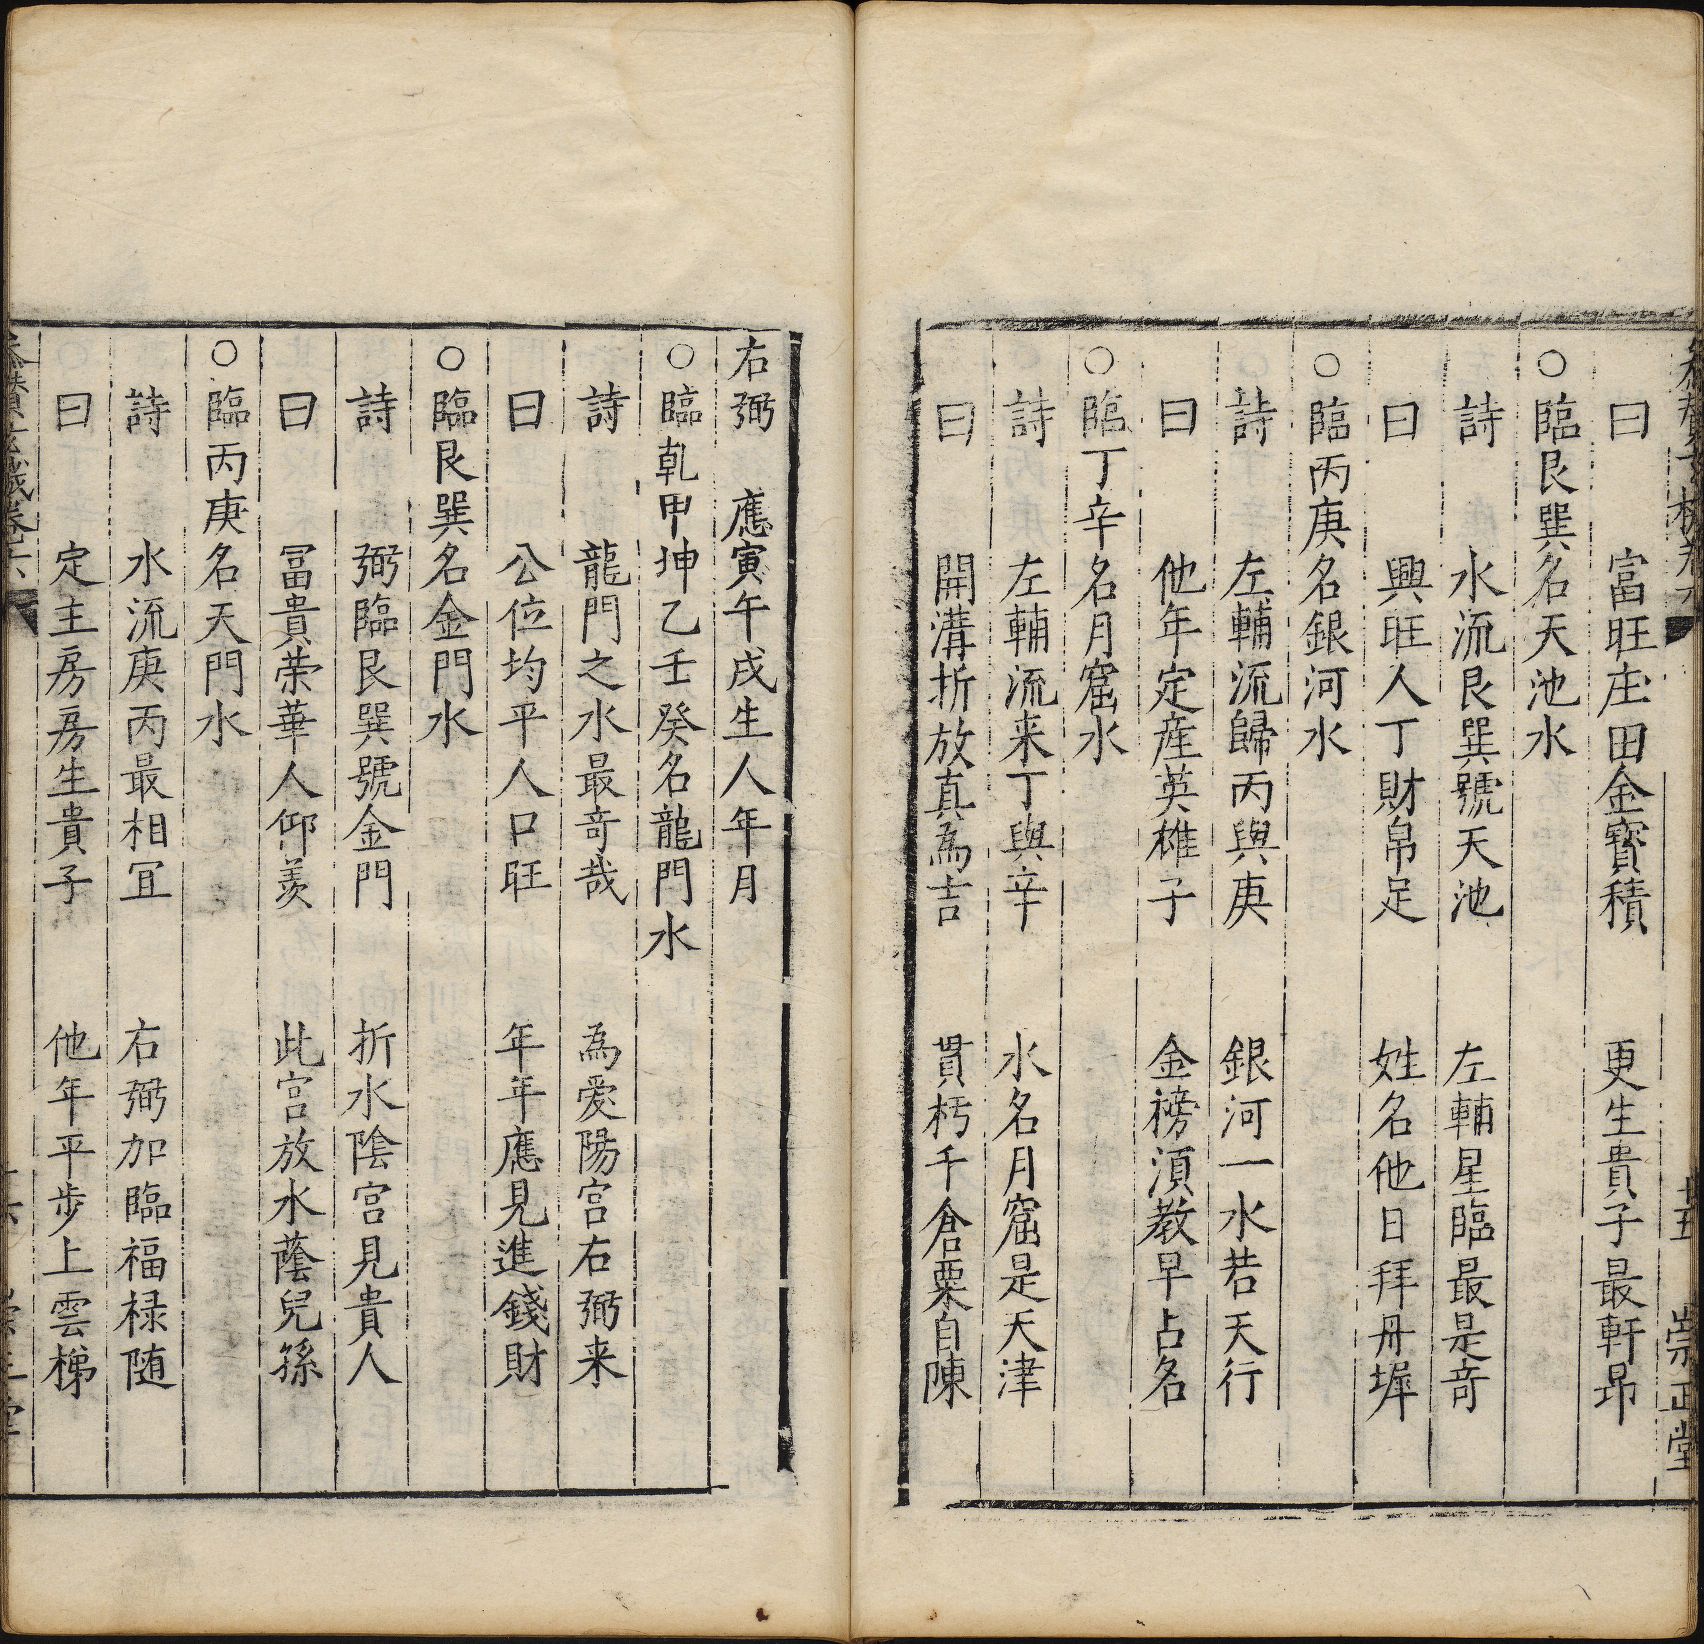 曰　富旺庄田金寳積　更生貴子最軒昂
○臨艮巽名天池水
詩　水流艮巽號天池　左輔星臨最是奇
曰　興旺人丁財帛足　姓名他日拜丹墀
○臨丙庚名銀河水
詩　左輔流歸丙與庚　銀河一水若天行
曰　他年定産英雄子　金榜湏教早占名
○臨丁辛名月窟水
詩　左輔流来丁與辛　水名月窟是天津
曰　開溝折放真為吉　貫朽千倉粟自陳
崇正堂
右弼　應寅午戌生人年月
○臨乾甲坤乙壬癸名龍門水
詩　龍門之水最奇哉　為愛陽宫右弼来
曰　公位均平人口旺　年年應見進錢財
○臨艮巽名金門水
詩　弼臨艮巽號金門　折水陰宫見貴人
曰　冨貴荣華人仰羡　此宫放水蔭兒孫
○臨丙庚名天門水
詩　水流庚丙最相冝　右弼加臨福禄随
曰　定主房房生貴子　他年平步上雲梯